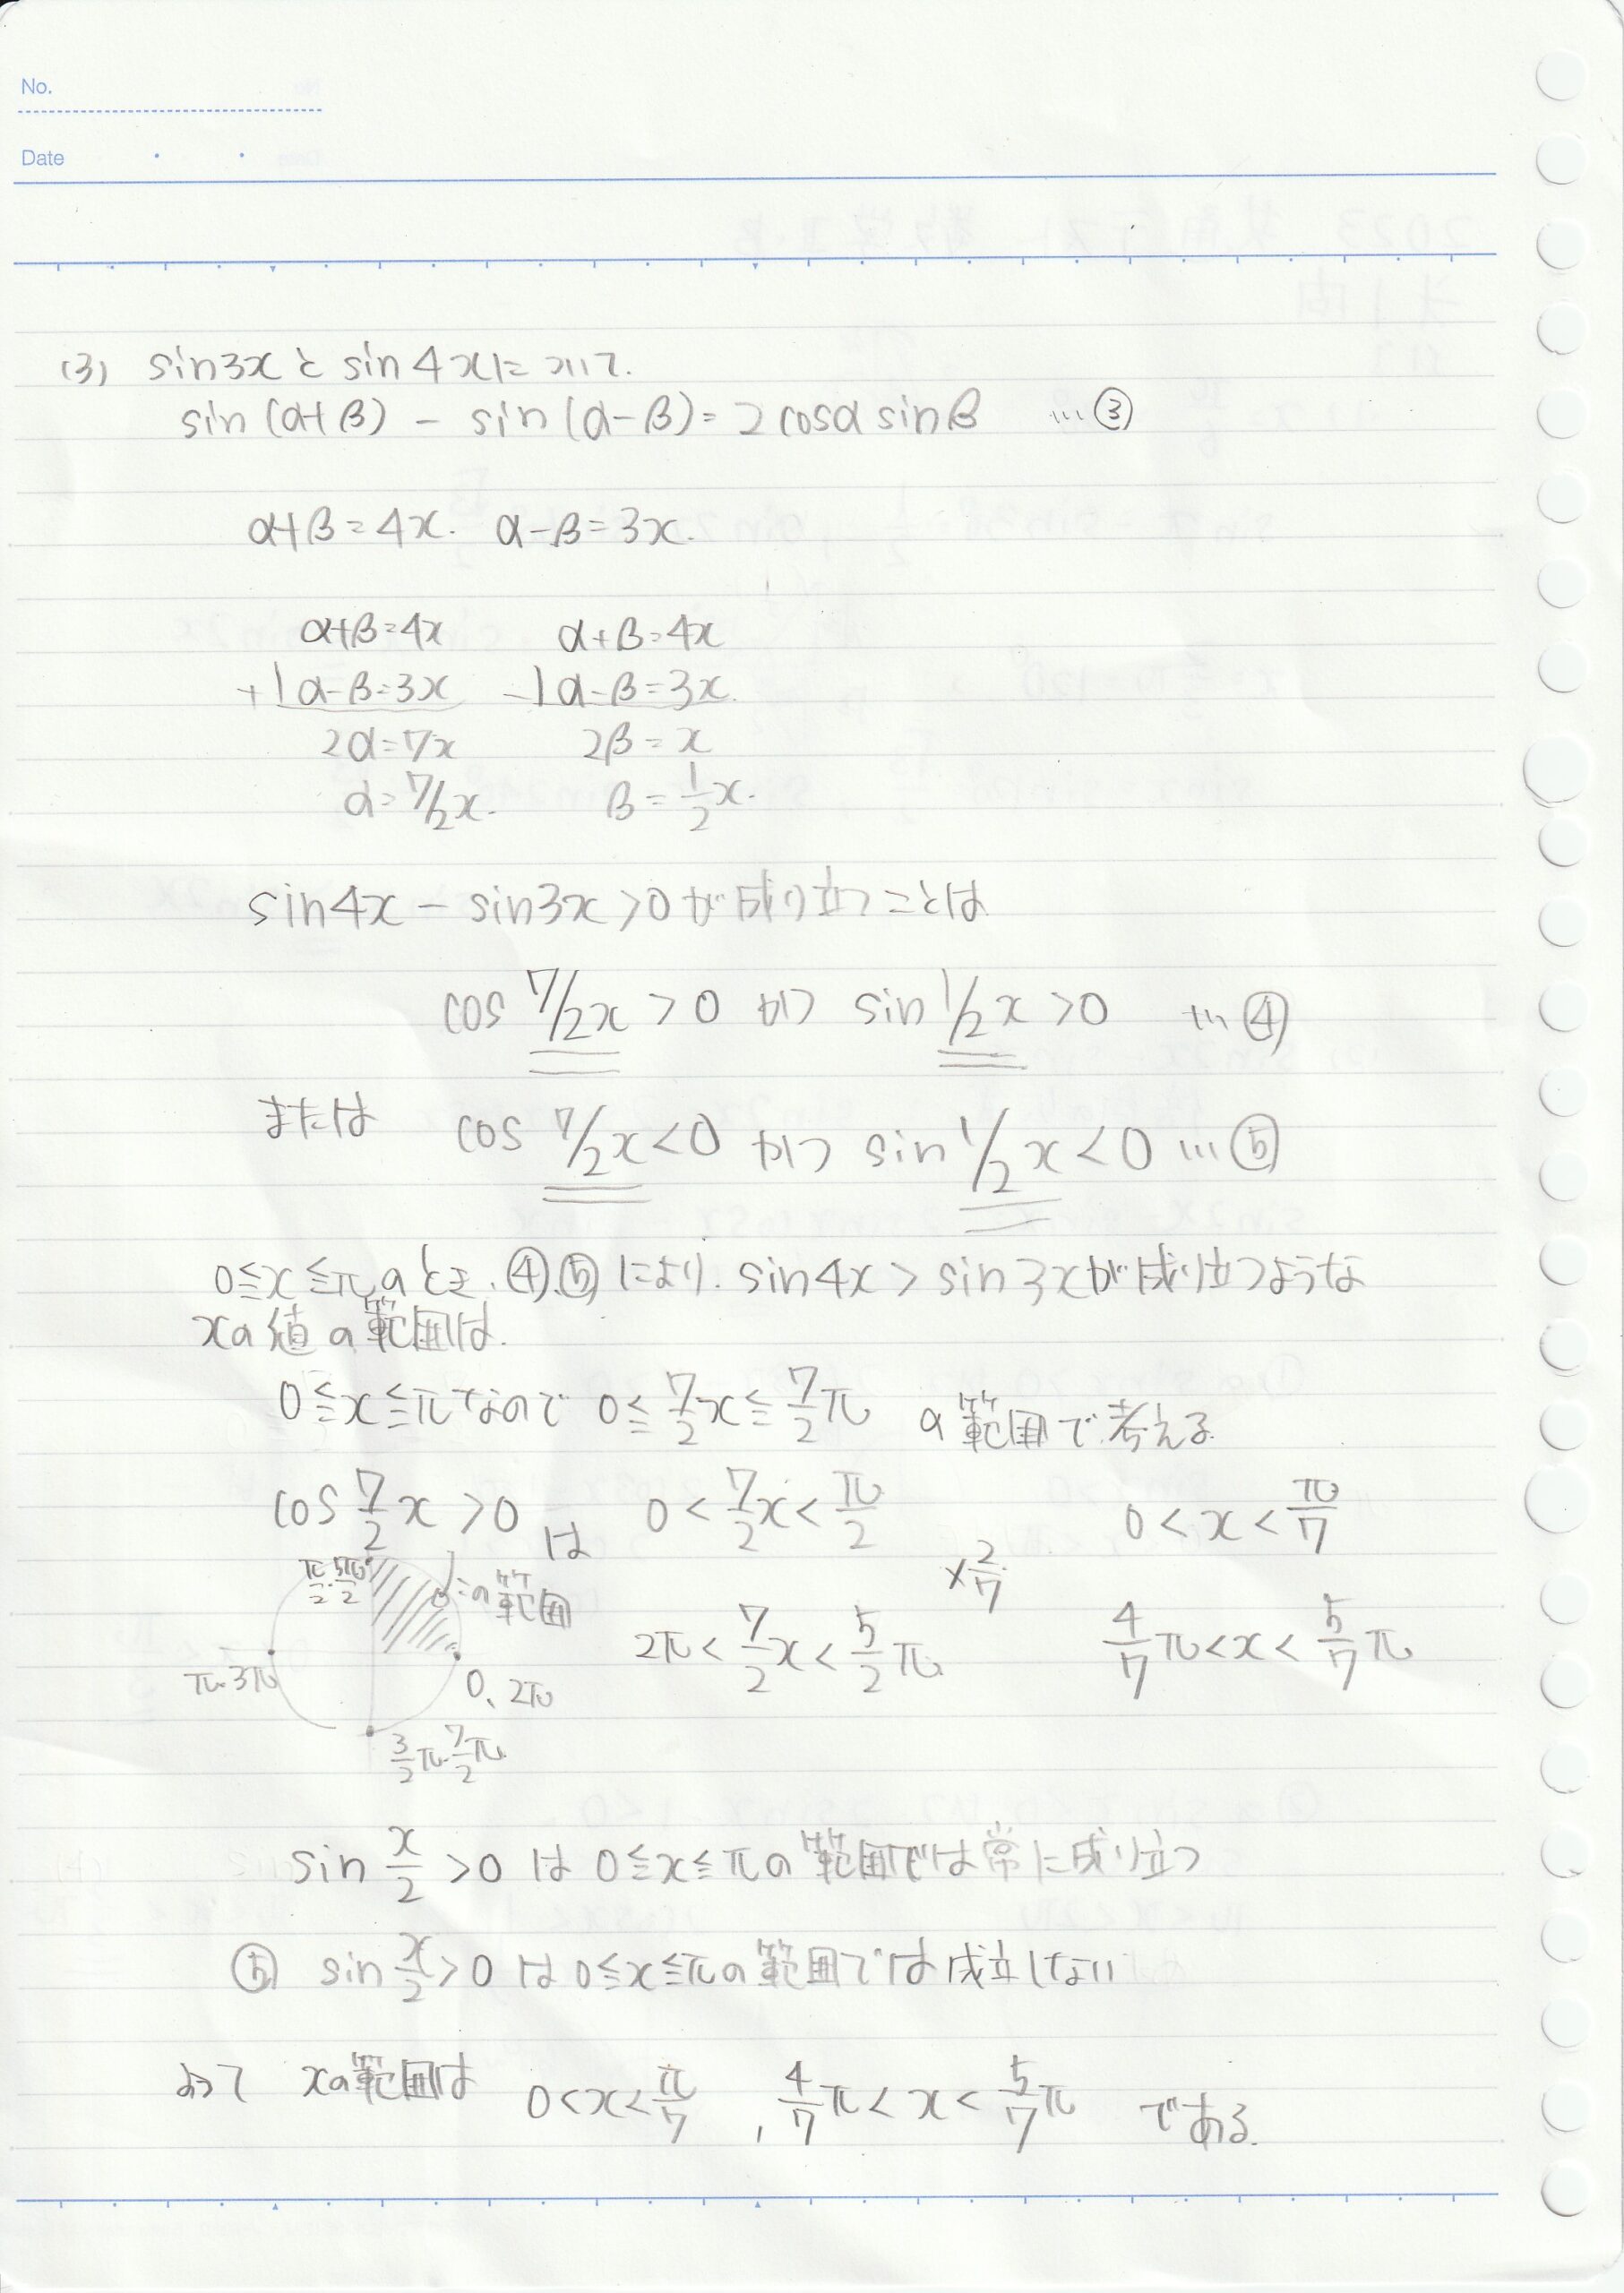 No.
Date
(3) sin3xとsin4xについて.
sin(α+β) - sin(α-β) = 2cosαsinβ …③
α+β=4x. α-β=3x.
α+β=4x α+β=4x
+)α-β=3x -)α-β=3x.
2α=7x 2β=x
α=7/2x. β=1/2x.
sin4x - sin3x>0が成り立つことは
cos 7/2x >0 かつ sin 1/2x >0 …④
または cos 7/2x<0 かつ sin 1/2x<0 …⑤
0≦x≦πのとき、④,⑤により. sin4x > sin3xが成り立つような
xの値の範囲は.
0≦x≦πなので 0≦7/2x≦7/2π の範囲で考える
cos 7/2x >0 は 0<7/2x<π/2 0<x<π/7
π/2・5π/2 この範囲 ×2/7
2π<7/2x<5/2π 4/7π<x<5/7π
π・3π 0、2π
3/2π・7/2π
sin x/2 >0 は 0≦x≦πの範囲では常に成り立つ
⑤ sin x/2>0 は 0≦x≦πの範囲では成立しない
よって xの範囲は 0<x<π/7 , 4/7π<x<5/7π である.